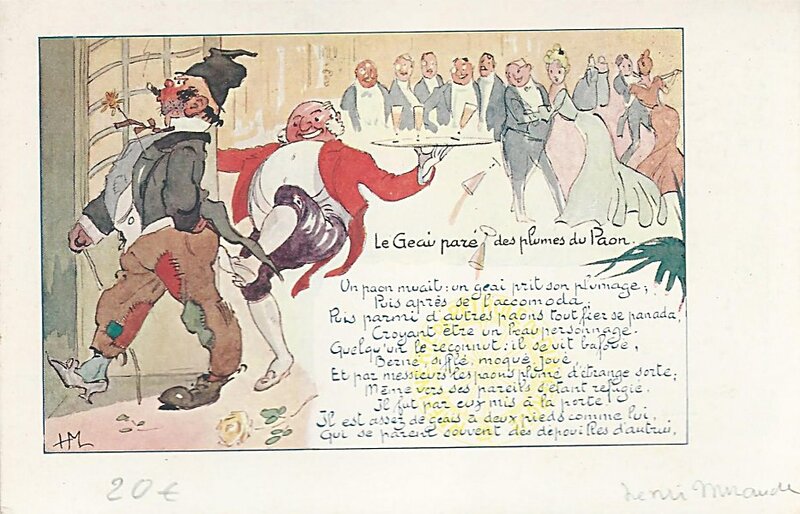 Le Geai paré des plumes du Paon.
Un paon muait: un geai prit son plumage;
Puis après se l'accomoda,
Puis parmi d'autres paons tout fier se panada,
Croyant être un beau personnage.
Quelqu'un le reconnut: il se vit bafoué,
Berné, sifflé, moqué, joué,
Et par messieurs les paons plumé d'étrange sorte;
Même vers ses pareils s'étant réfugié,
Il fut par eux mis à la porte
Il est assez de geais à deux pieds comme lui,
Qui se parent souvent des dépouilles d'autrui.
HM
20€
Henri Mirande